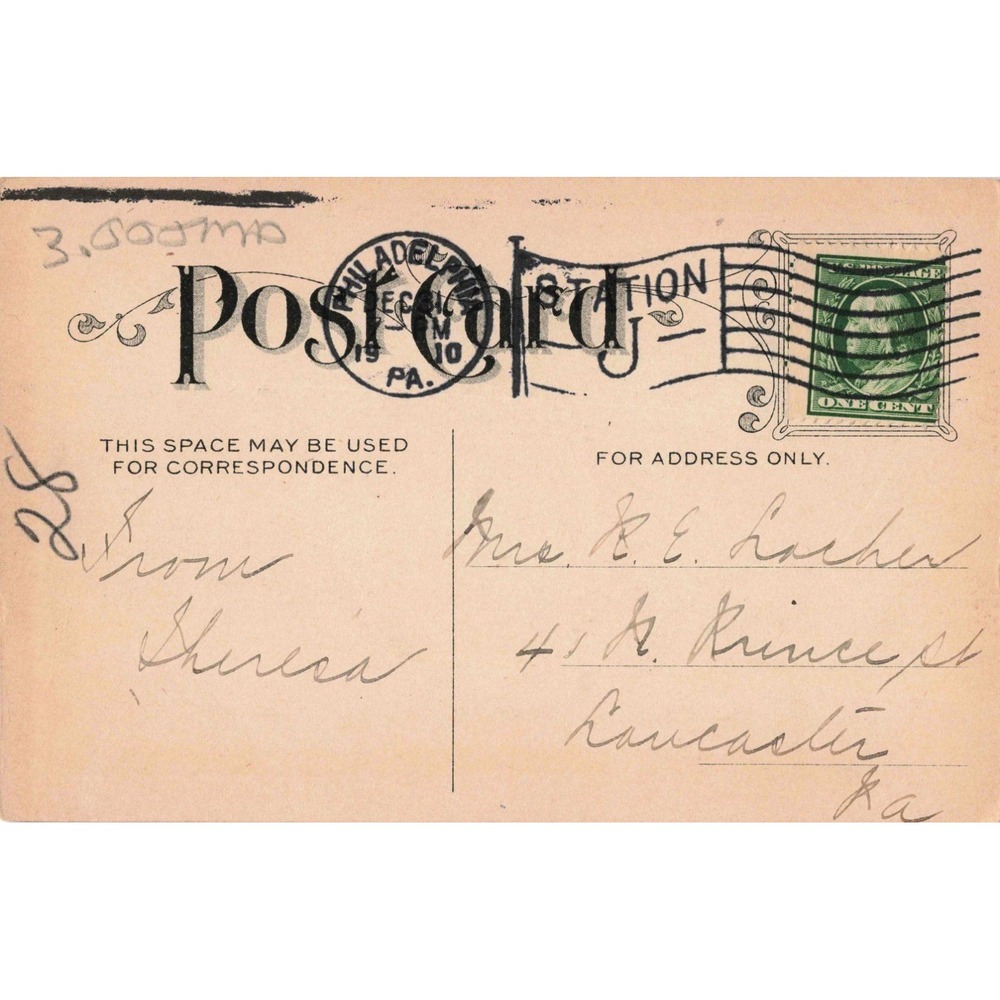 Post Card
PHILADELPHIA
DEC 31
M
19 10
PA.
STATION
J
U.S. POSTAGE
ONE CENT
THIS SPACE MAY BE USED
FOR CORRESPONDENCE.
FOR ADDRESS ONLY.
28
From
Theresa
Mrs. R. E. Locher
41 N. Prince st
Lancaster
Pa